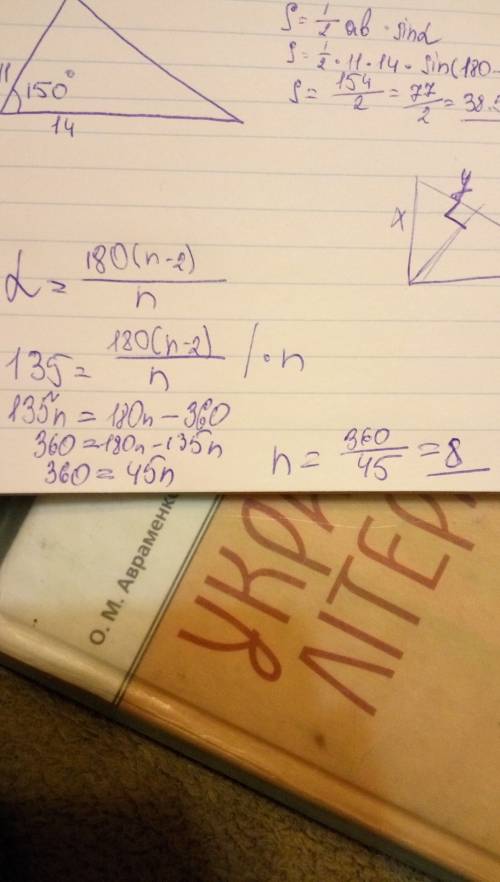 S = 1/2 ab · sinα
S = 1/2 · 11 · 14 · sin(180-
S = 154/2 = 77/2 = 38.5
11
150°
14
y
x
α = 180(n-2)/n
135 = 180(n-2)/n / · n
135n = 180n - 360
360 = 180n - 135n
360 = 45n
n = 360/45 = 8
О. М. Авраменк
УКРА
ЛІТЕР